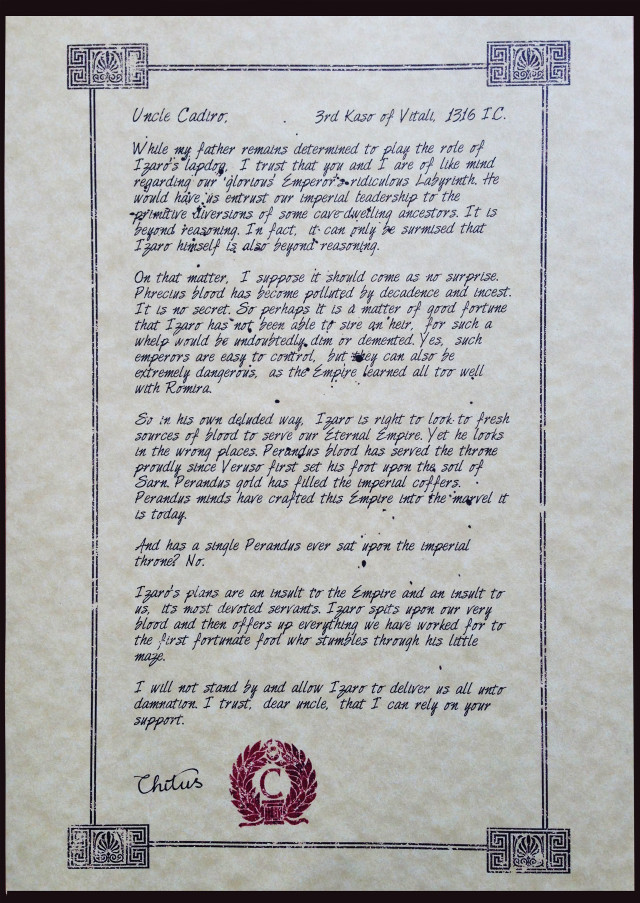 Uncle Cadiro, 3rd Kaso of Vitali, 1316 I.C.
While my father remains determined to play the role of
Izaro's lapdog, I trust that you and I are of like mind
regarding our 'glorious' Emperor's ridiculous Labyrinth. He
would have us entrust our imperial leadership to the
primitive diversions of some cave-dwelling ancestors. It is
beyond reasoning. In fact, it can only be surmised that
Izaro himself is also beyond reasoning.
On that matter, I suppose it should come as no surprise.
Phrecius blood has become polluted by decadence and incest.
It is no secret. So perhaps it is a matter of good fortune
that Izaro has not been able to sire an heir, for such a
whelp would be undoubtedly dim or demented. Yes, such
emperors are easy to control, but they can also be
extremely dangerous, as the Empire learned all too well
with Romira.
So in his own deluded way, Izaro is right to look to fresh
sources of blood to serve our Eternal Empire. Yet he looks
in the wrong places. Perandus blood has served the throne
proudly since Veruso first set his foot upon the soil of
Sarn. Perandus gold has filled the imperial coffers.
Perandus minds have crafted this Empire into the marvel it
is today.
And has a single Perandus ever sat upon the imperial
throne? No.
Izaro's plans are an insult to the Empire and an insult to
us, its most devoted servants. Izaro spits upon our very
blood and then offers up everything we have worked for to
the first fortunate fool who stumbles through his little
maze.
I will not stand by and allow Izaro to deliver us all unto
damnation. I trust, dear uncle, that I can rely on your
support.
Chitus
C